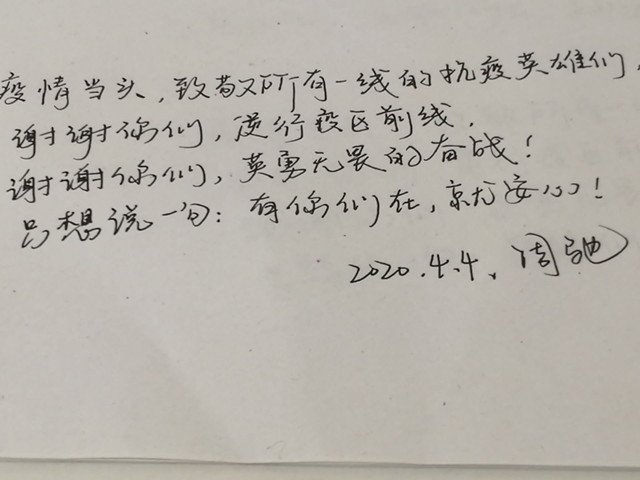 疫情当头，致敬所有一线的抗疫英雄们，
谢谢你们，逆行疫区前线，
谢谢你们，英勇无畏的奋战！
只想说一句：有你们在，就安心！
2020.4.4、周驰